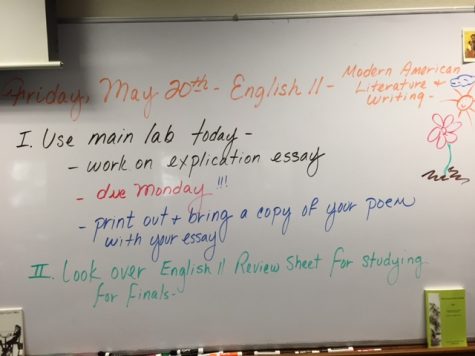 Friday, May 20th - English 11 - Modern American
Literature &
Writing -
I. Use main lab today -
- work on explication essay
- due Monday !!!
- print out + bring a copy of your poem
with your essay
II. Look over English 11 Review Sheet for studying
for finals -